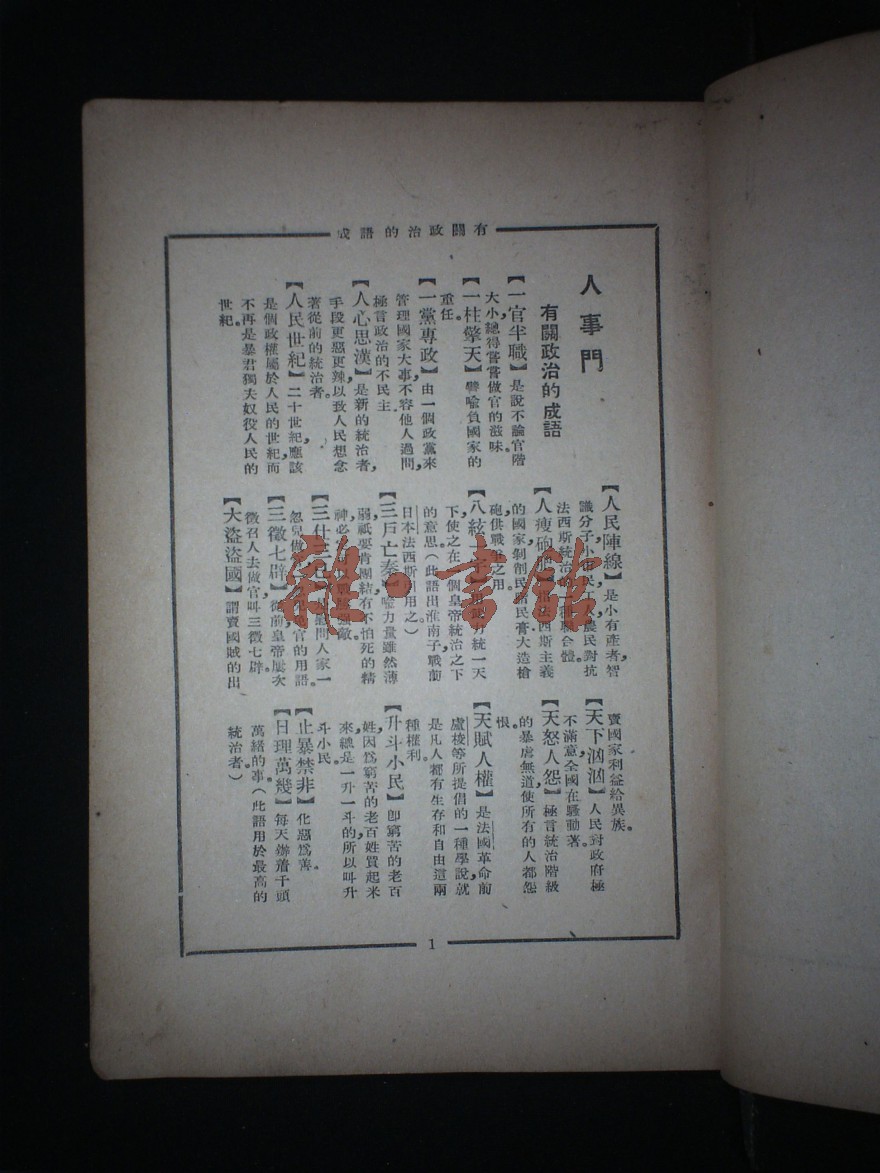 有關政治的語成
人事門
有關政治的成語
【一官半職】是說不論官階
大小,總得嘗嘗做官的滋味。
【一柱擎天】譬喻負國家的
重任。
【一黨專政】由一個政黨來
管理國家大事,不容他人過問,
極言政治的不民主
【人心思漢】是新的統治者,
手段更惡更辣,以致人民想念
著從前的統治者。
【人民世紀】二十世紀,應該
是個政權屬於人民的世紀,而
不再是暴君獨夫奴役人民的
世紀。
【人民陣線】是小有產者,智
識分子,小市民,工人,農民對抗
法西斯統治的
【人瘦砲肥】法西斯主義
的國家,剝削民脂民膏,大造槍
砲,供戰爭之用
【八紘一宇】統一天
下,使之在一個皇帝統治之下
的意思(此語出淮南子,戰前
日本法西斯用之)
【三戶亡秦】喻力量雖然薄
弱,祇要肯團結,有不怕死的精
神,必強敵
【三仕三已】問人家一
忽兒做官的用語。
【三徵七辟】從前皇帝屢次
徵召人去做官叫三徵七辟。
【大盜盜國】謂賣國賊的出
賣國家利益給異族。
【天下汹汹】人民對政府極
不滿意,全國在騷動著。
【天怒人怨】極言統治階級
的暴虐無道,使所有的人都怨
恨。
【天賦人權】是法國革命前
盧梭等所提倡的一種學說,就
是凡人都有生存和自由這兩
種權利。
【升斗小民】卽窮苦的老百
姓,因爲窮苦的老百姓買起米
來,總是一升一斗的,所以叫升
斗小民。
【止暴禁非】化惡爲善。
【日理萬幾】每天辦着千頭
萬緒的事(此語用於最高的
統治者)
1
雜·書館